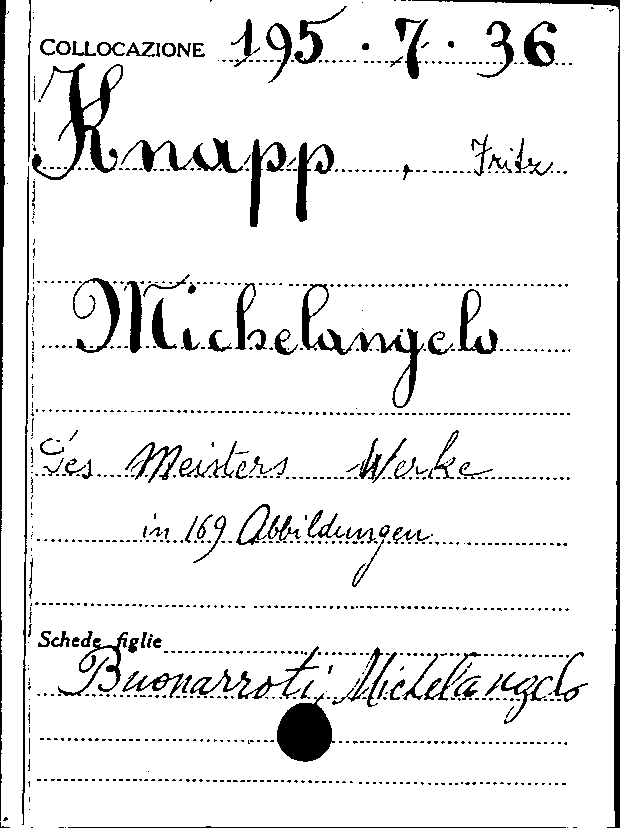 COLLOCAZIONE 195.7.36
Knapp, Fritz
Michelangelo
Des Meisters Werke
in 169 Abbildungen
Schede figlie
Buonarroti, Michelangelo